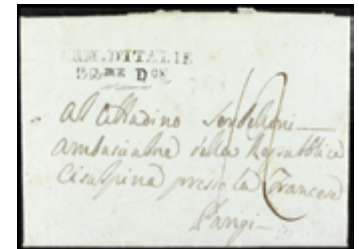 ARM. D'ITALIE
3e DON
al Cittadino Serbelloni
ambasciatore della Repubblica
Cisalpina presso la Francese
Parigi